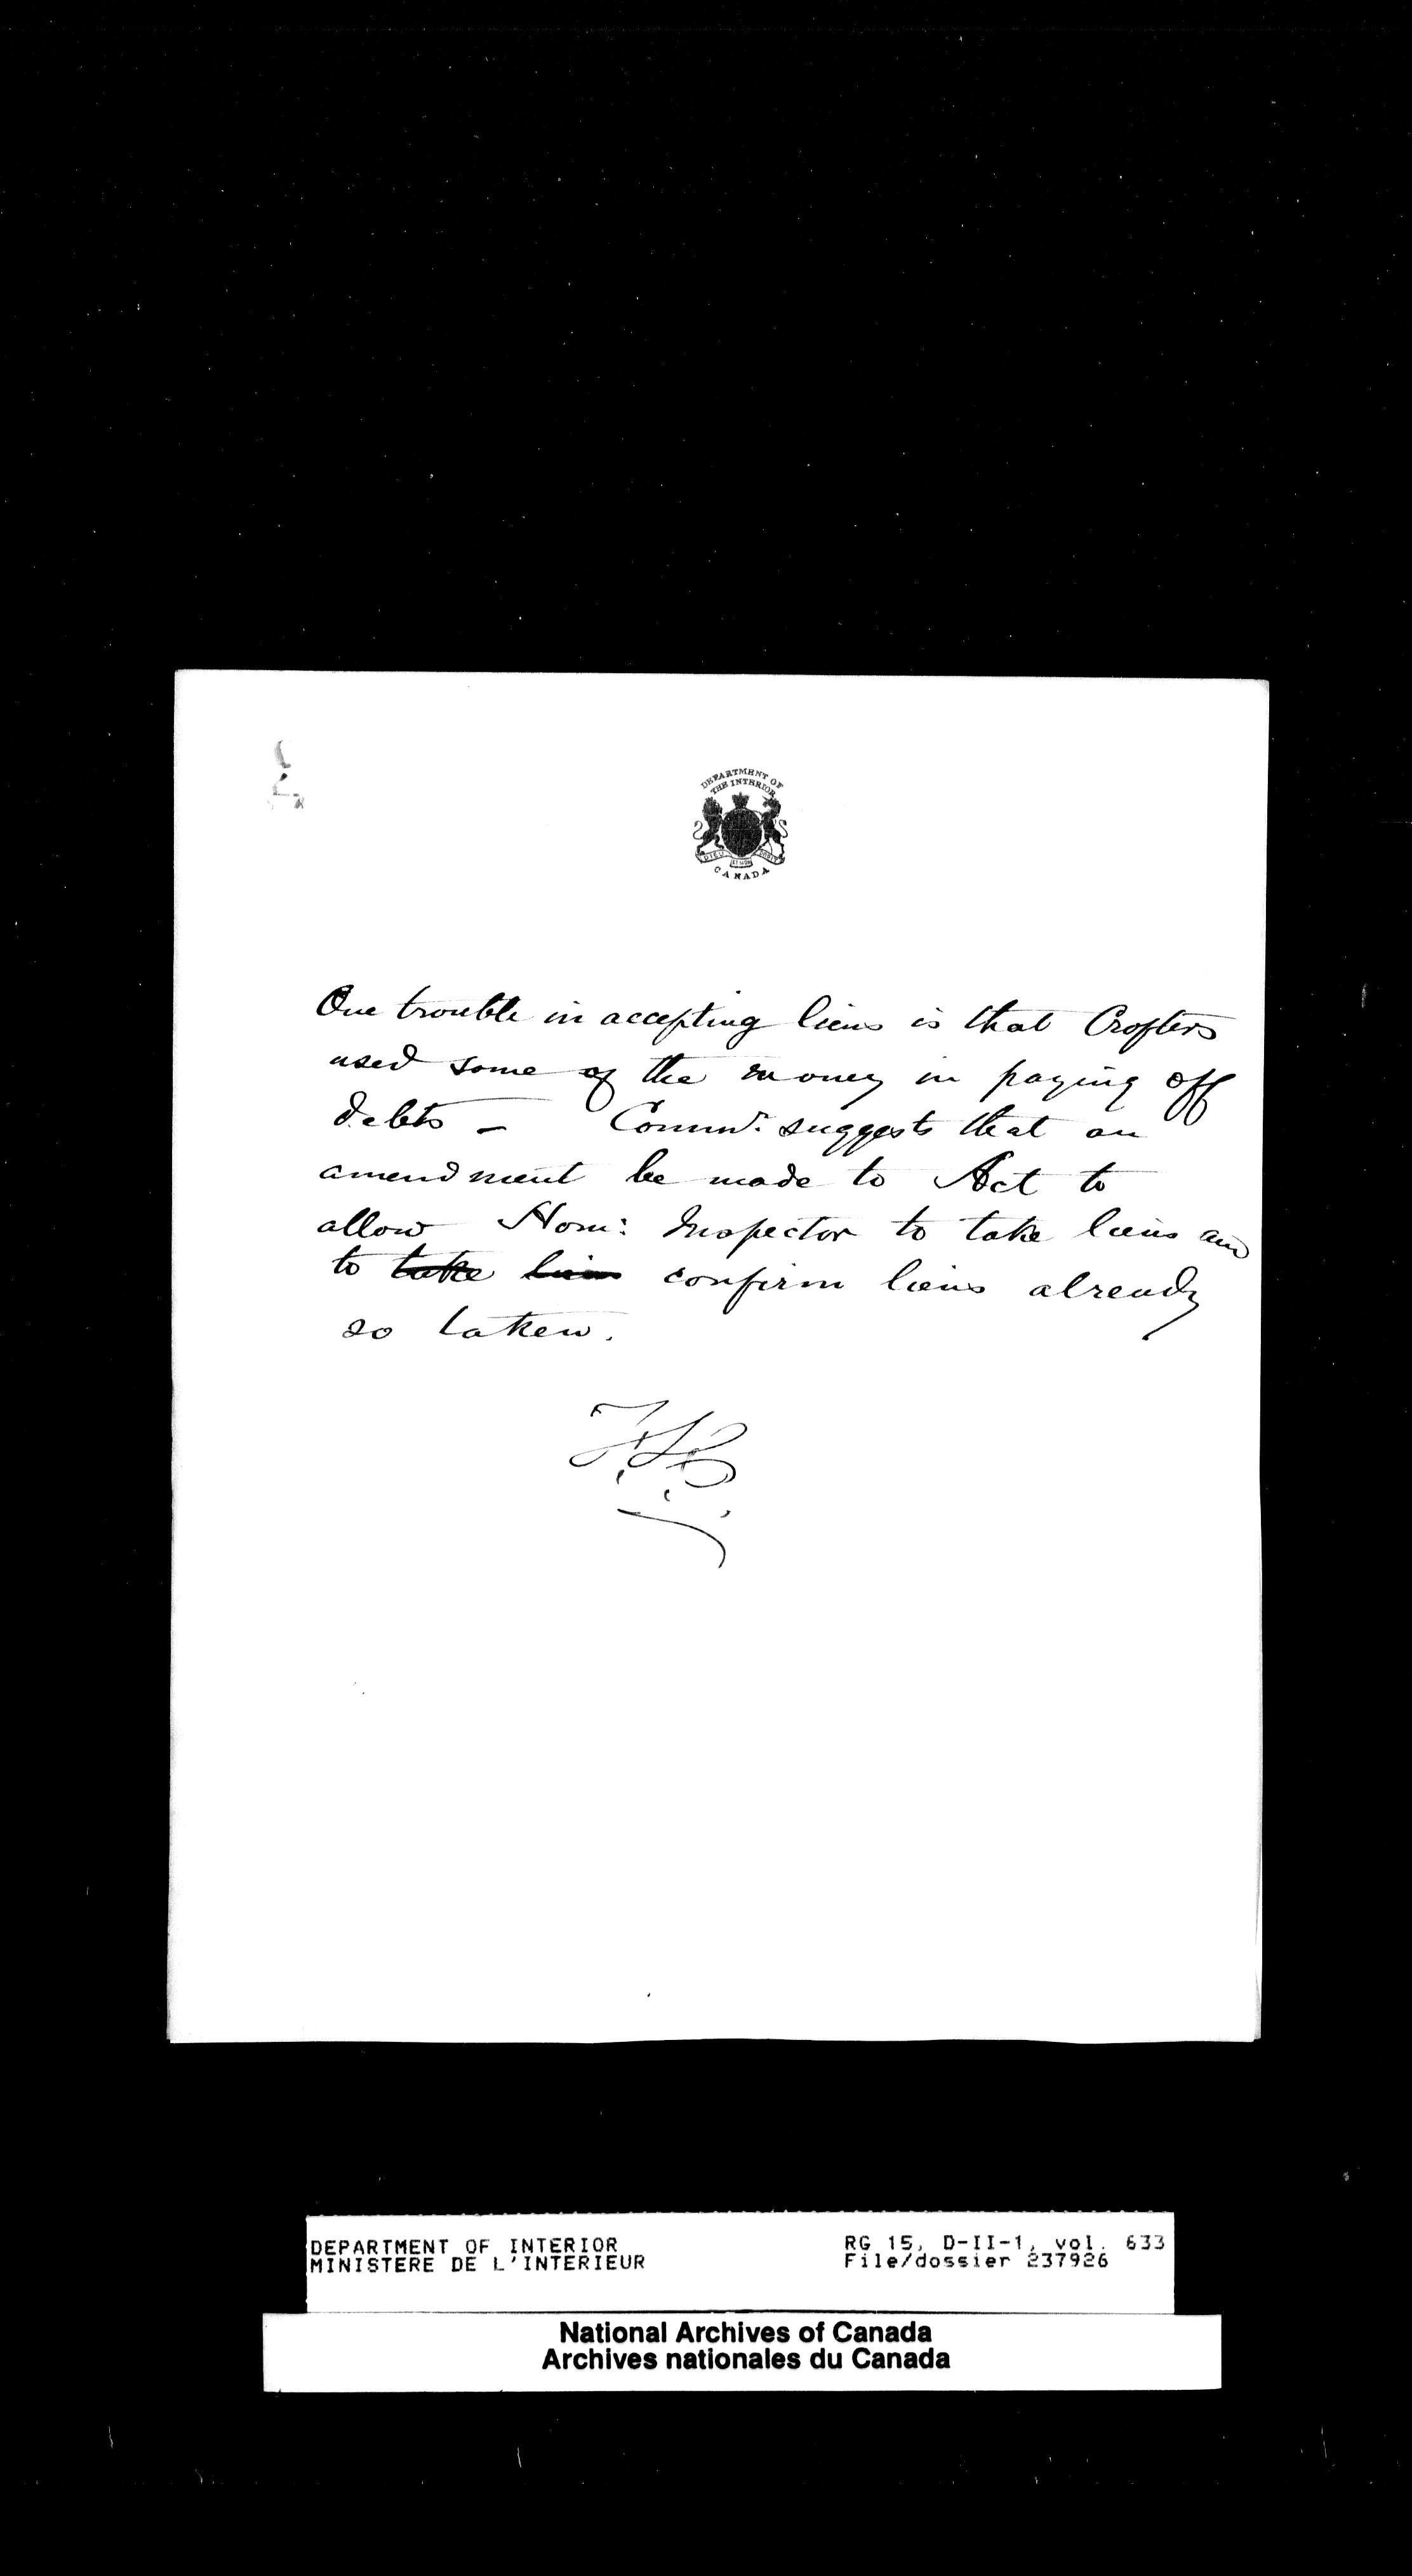 DEPARTMENT OF
THE INTERIOR
DIEU ET MON DROIT
CANADA
One trouble in accepting liens is that Crofters
used some of the money in paying off
debts – Commr. suggests that an
amendment be made to Act to
allow Hom: Inspector to take liens and
to take liens confirm liens already
so taken.
DEPARTMENT OF INTERIOR
MINISTERE DE L'INTERIEUR
RG 15, D-II-1, vol. 633
File/dossier 237926
National Archives of Canada
Archives nationales du Canada